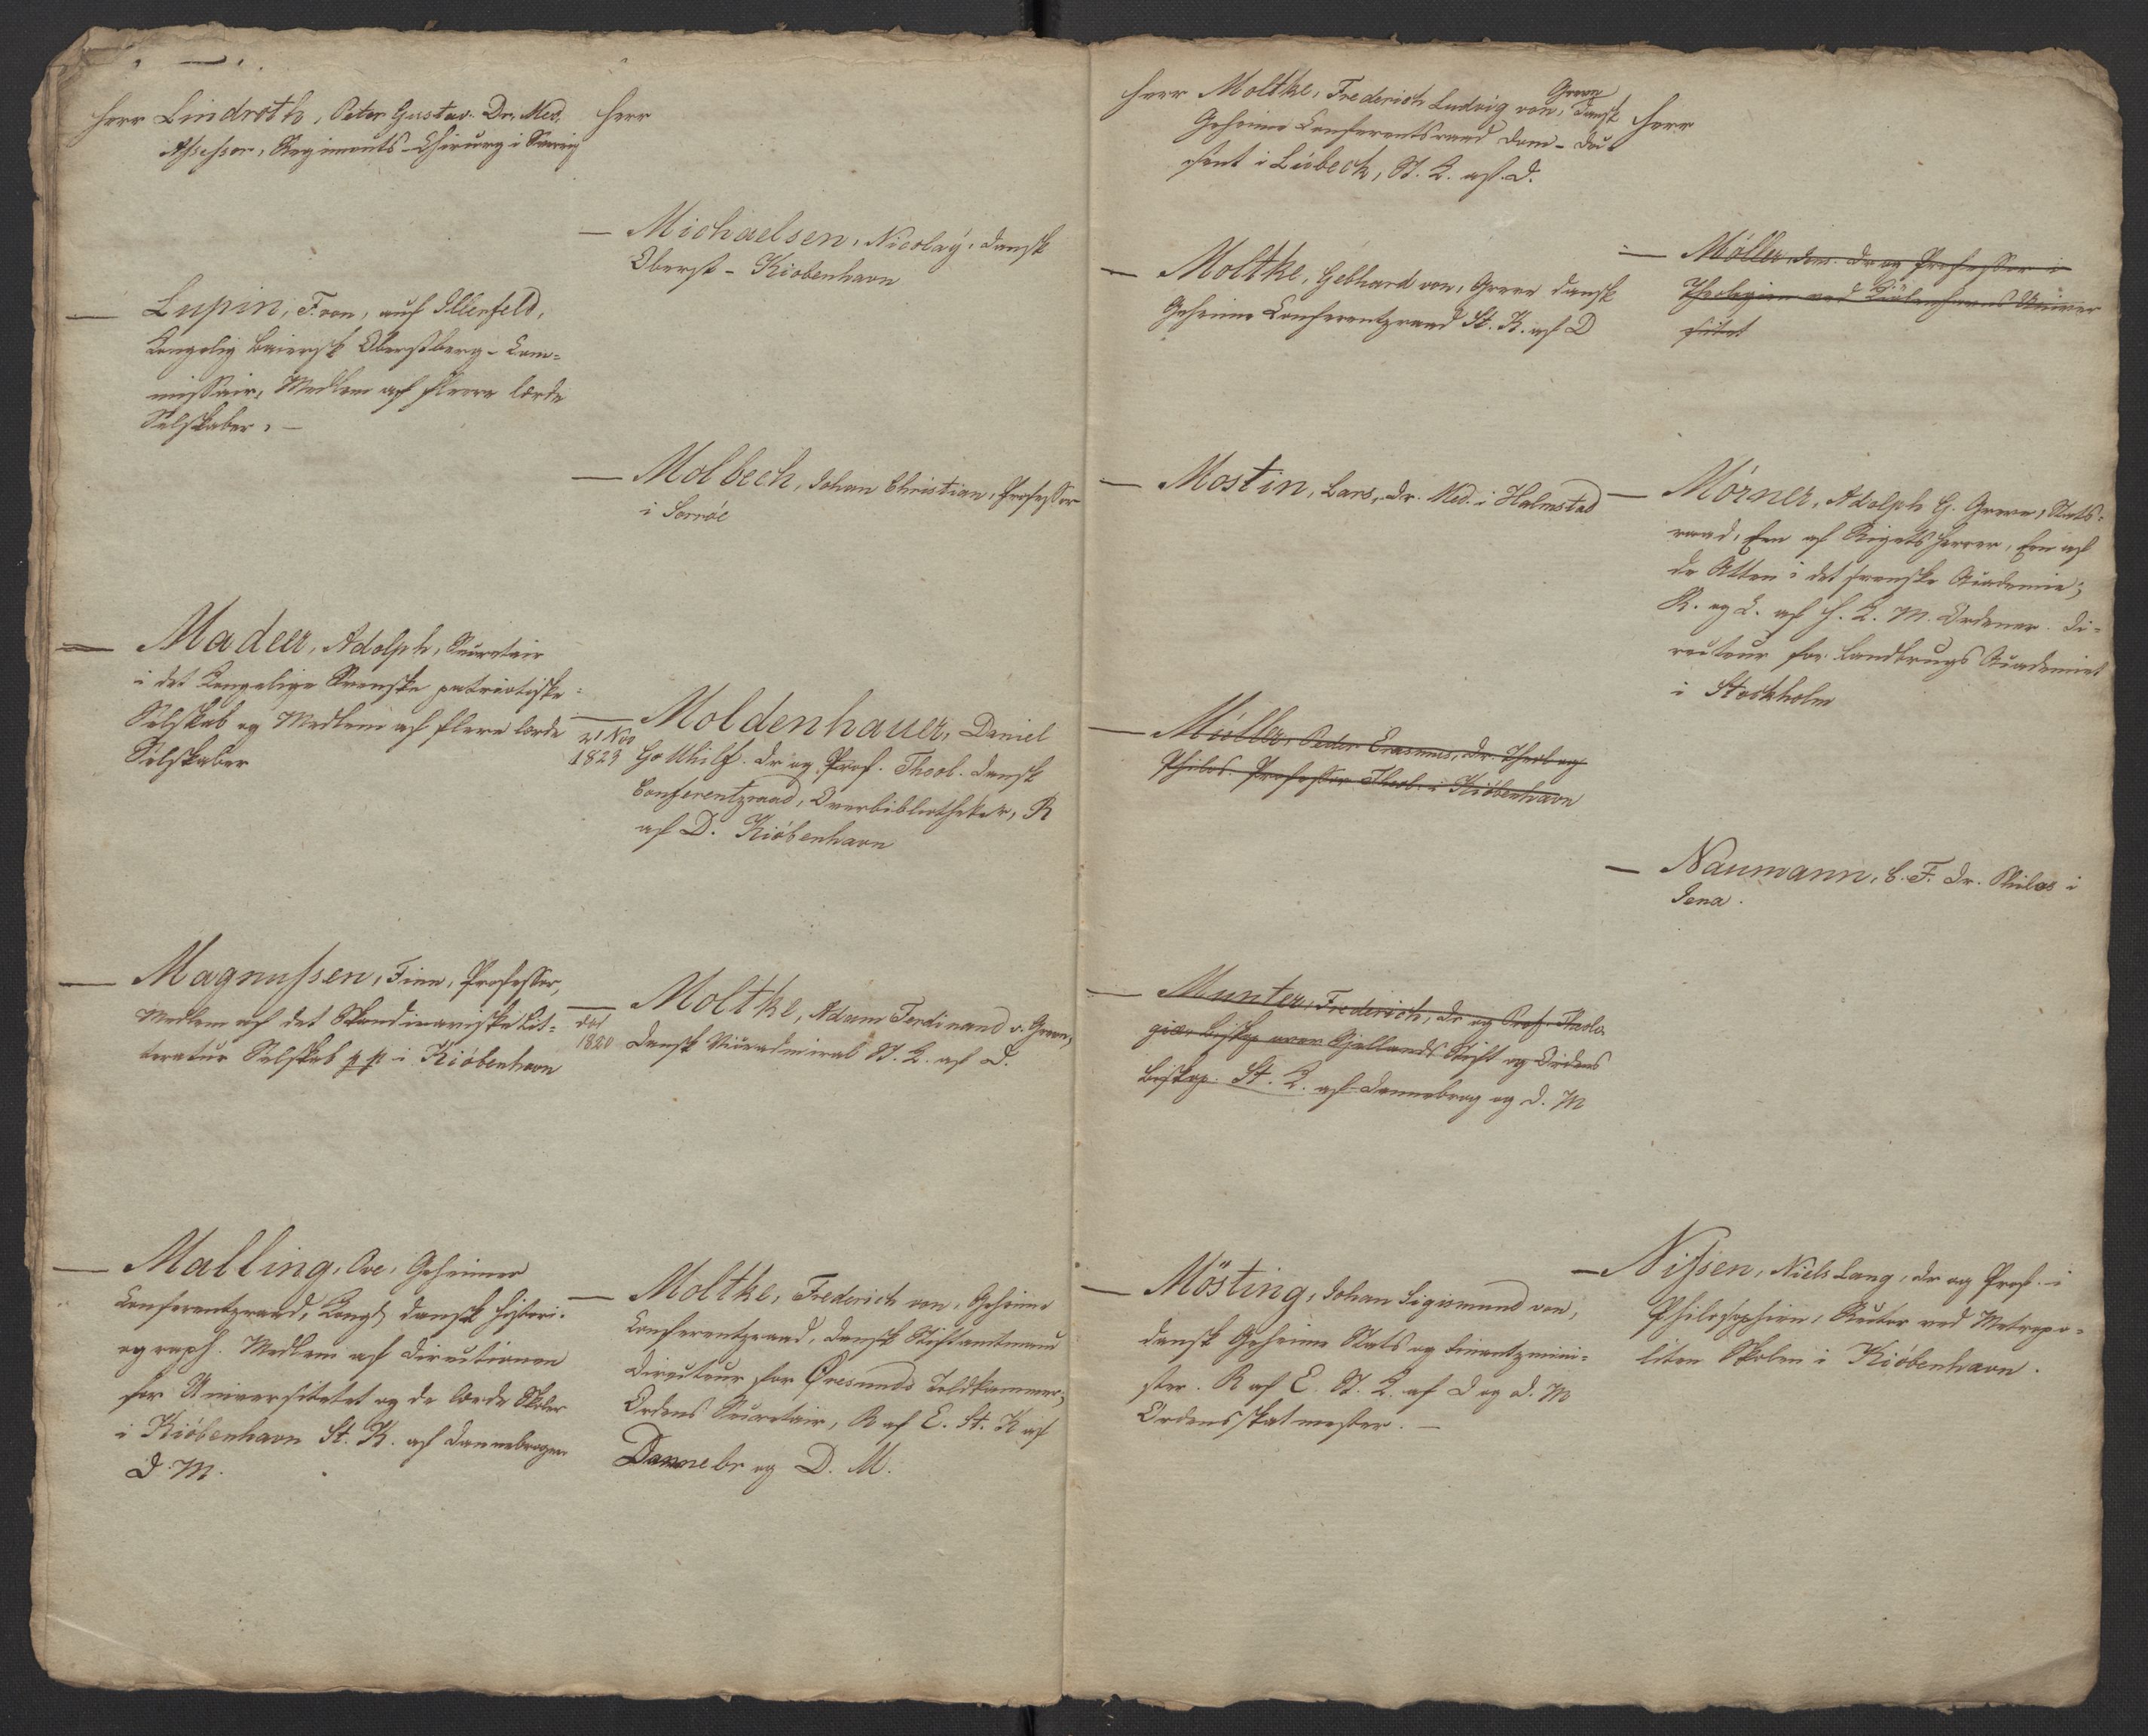 Herr Lindroth, Peter Gustav. Dr. Med.
Assessor, Regiments-Chirurg i Sverrig
— Lupin, F. von, auf Illerfeld,
Kongelig Baiersk Oberstberg-Com-
missair, Medlem af flere lærde
Selskaber. —
— Madeer, Adolph, Secretair
i det Kongelige Svenske patriotiske
Selskab og Medlem af flere lærde
Selskaber
— Magnussen, Finn, Professor,
Medlem af det Skandinaviske Lit-
teratur Selskab pp i Kiöbenhavn
— Malling, Ove, Geheimer
Conferentzraad, Kongl dansk Histori-
ograph. Medlem af Directionen
for Universitetet og de lærde Skoler
i Kiöbenhavn St. K. af Dannebrogen
D. M.
Herr
— Michaelsen, Nicolaÿ, dansk
Oberst - Kiobenhavn
— Molbech, Johan Christian, Professor
i Sorröe
— Moldenhauer, Daniel
21 Nov
1823 Gotthilf. Dr og Prof. Theol. dansk
Conferentzraad, Overbibliotheker, R
af D. Kiöbenhavn
— Moltke, Adam Ferdinand v. Greve,
död
1820 dansk Viceadmiral St. K. af D.
— Moltke, Frederich von, Geheime
Conferentzraad, dansk Stiftamtmand
Directeur for Øresunds Toldkammer,
Ordens Secretair, R af E. St. K af
Dannebr og D. M.
Herr Moltke, Frederich Ludvig von, Greve dansk
Geheime Conferentsraad Dom-
i Lübeck, St. K. af D.
— Moltke, Gebhard von, Greve dansk
Geheime Conferentzraad St. K. af D
— Mostin, Lars, Dr. Med. i Halmstad
— Müller, Peder Erasmus, Dr. Theol og
Philos. Professor Theol. i Kiöbenhavn
— Munter, Frederich, Dr og Prof. Theolo
giæ, Biskop over Sjællands Stift og Ordens
Biskop. St. K. af Dannebrog og D. M
— Mösting, Johan Sigismund von,
dansk Geheime Stats og Finantzmini-
ster. R af E. St. K. af D og D. M
Ordensskatmester. —
Herr
— Möller, Dr og Professor i
Theologien ved Kiöbenhavns Univer
sitet
— Mörner, Adolph G. Greve, Stats-
raad, Een af Rigets Herrer, Een af
de Atten i det svenske Academie;
R. og C. af H. K. M. Ordener. Di-
recteur for Landbrugs Academiet
i Stockholm
— Naumann, C. F. Dr. Philos i
Jena.
— Nissen, Niels Lang, Dr og Prof. i
Philosophien, Rector ved Metropo-
litan Skolen i Kiöbenhavn.